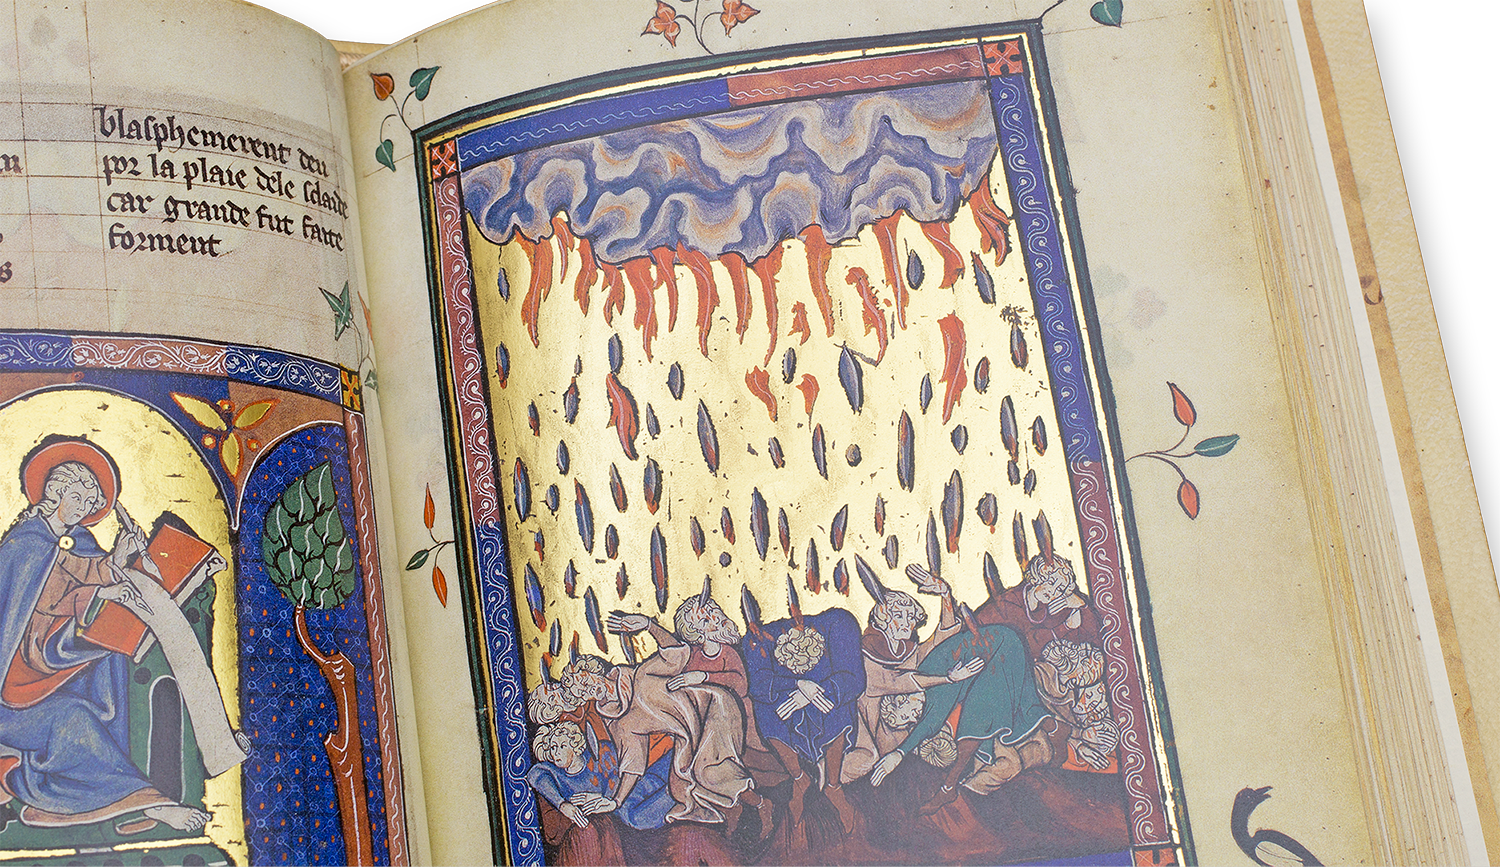 blasphemerent deu
por la plaie dele sclande
car grande fut faite
forment